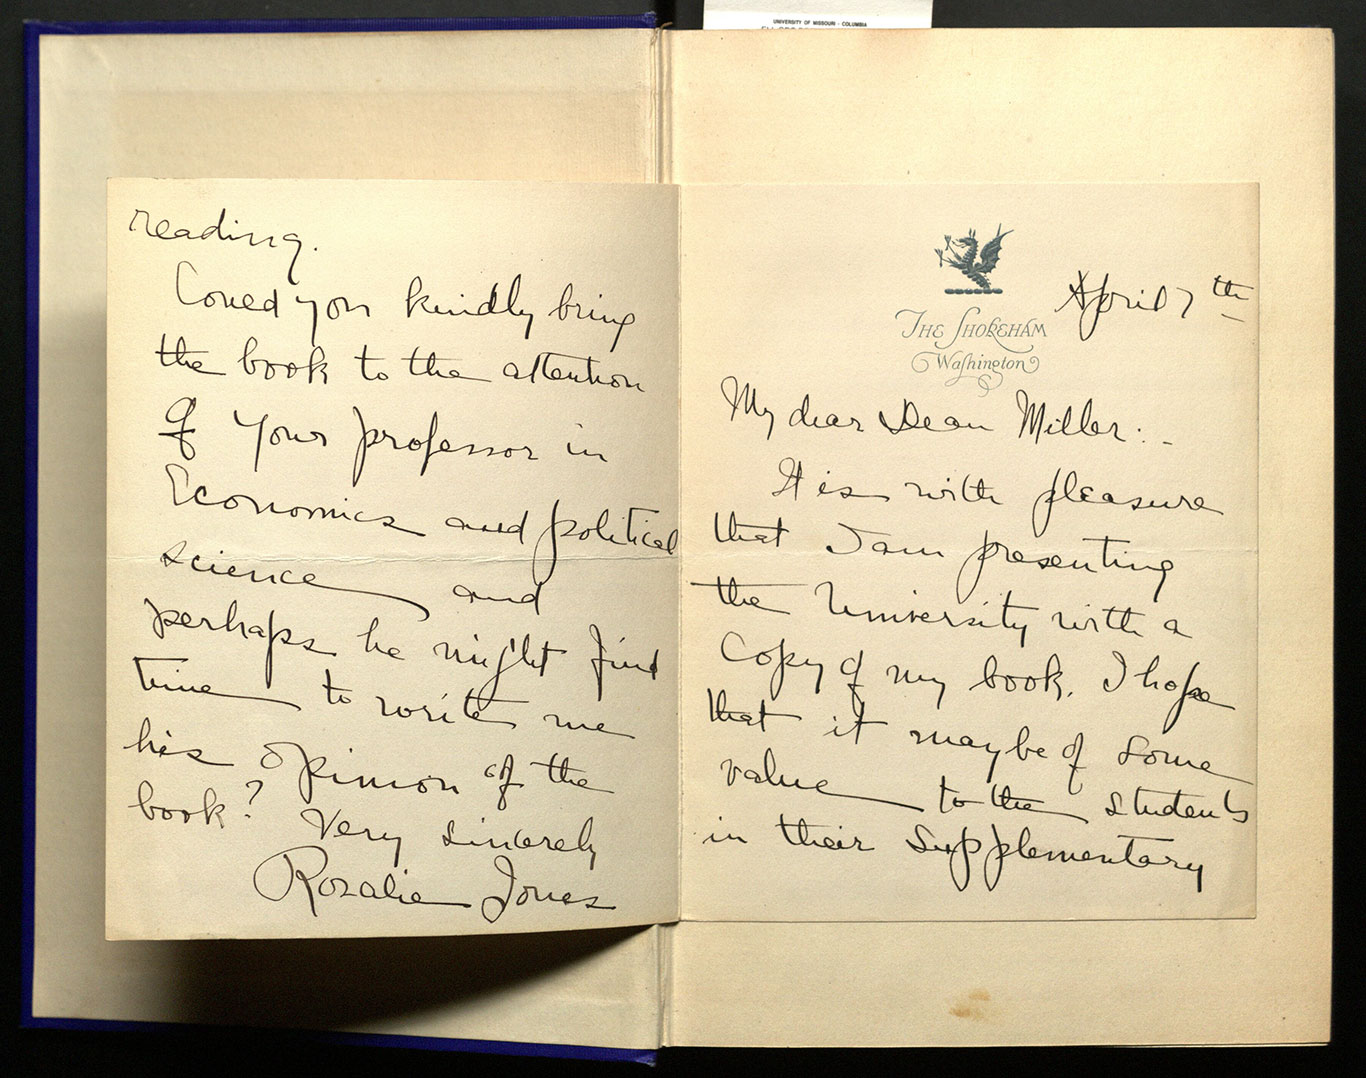 UNIVERSITY OF MISSOURI - COLUMBIA
THE SHOREHAM
Washington
April 7th
My dear Dean Miller:-
It is with pleasure
that I am presenting
the University with a
copy of my book. I hope
that it may be of some
value to the students
in their supplementary
reading.
Could you kindly bring
the book to the attention
of your professor in
Economics and political
science and
perhaps he might find
time to write me
his opinion of the
book? Very sincerely
Rosalie Jones